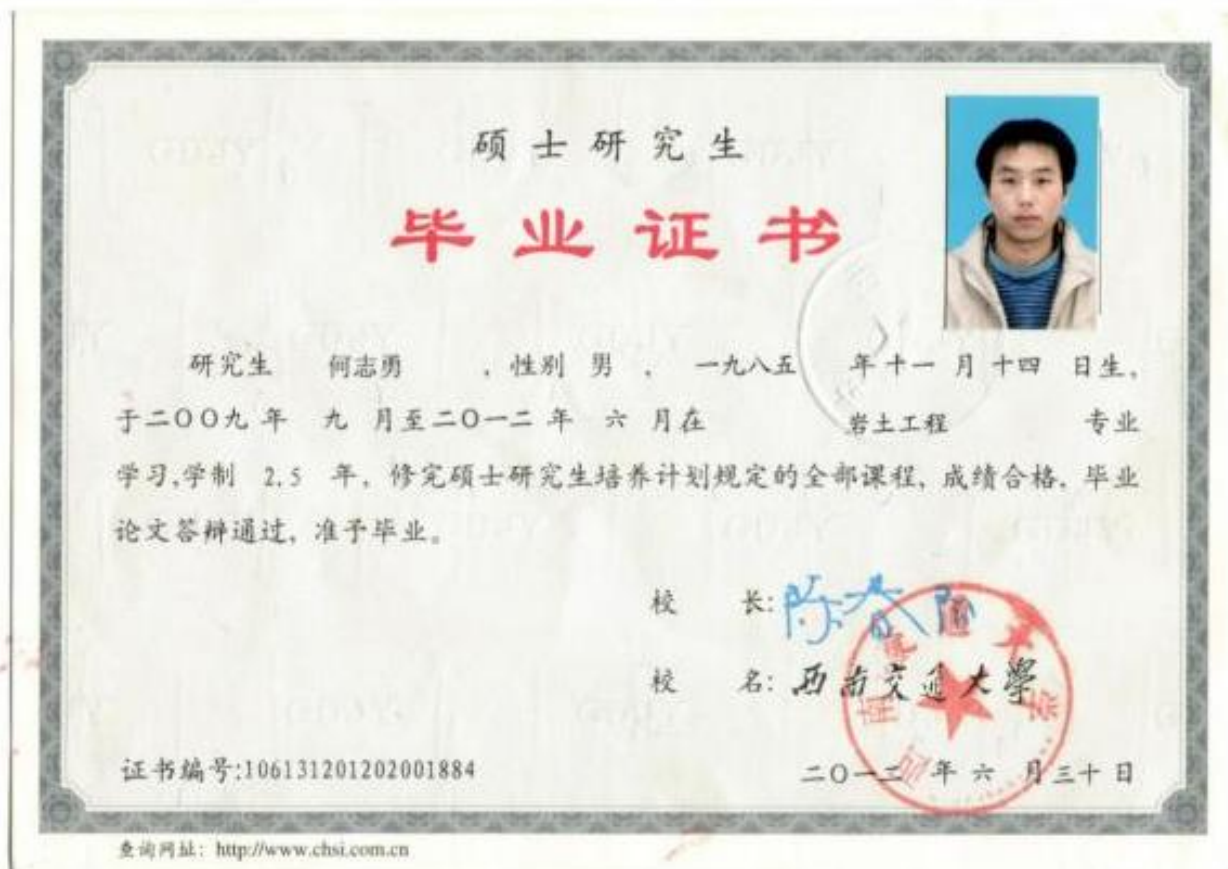 硕士研究生
毕业证书
研究生 何志勇 ,性别 男 , 一九八五 年十一月十四 日生,
于二〇〇九年 九 月至二〇一二年 六 月在 岩土工程 专业
学习,学制 2.5 年, 修完硕士研究生培养计划规定的全部课程, 成绩合格, 毕业
论文答辩通过, 准予毕业。
校 长:
校 名: 西南交通大學
证书编号:106131201202001884
二〇一二年 六 月三十日
查询网址: http://www.chsi.com.cn